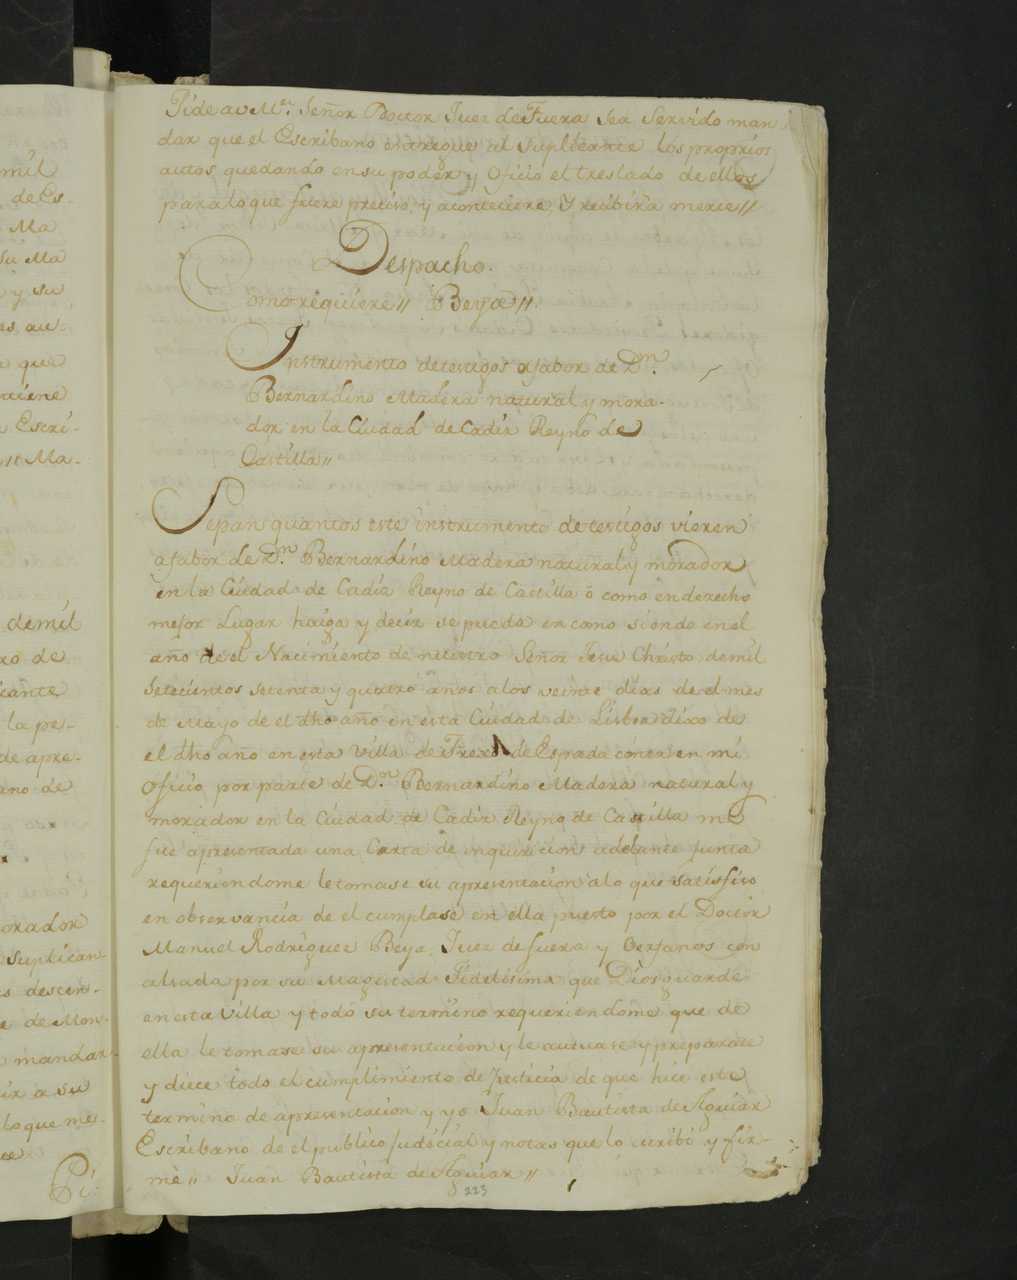 mil
de Es-
Ma
su Ma
y su
es au-
a que
tiene
Escri-
Ma-
demil
xo de
icante
la pe-
de apre-
ano de
orador
suplican-
s descen-
e de Mon-
mandar
ix a su
lo que me-
Pi-
Pide a v M.ᵈ Señor Doctor Juez de Fuera Sea Servido man
dar que el Escribano entregue al Suplicante los proprios
autos quedando en su poder y Oficio el treslado de ellos
para lo que fuere preciso, y aconteciere, Y recibira merce //
Despacho.
Como requiere // Beya //.
Instrumento de testigos afabor de Dⁿ.
Bernardino Madera natural y mora-
dor en la Ciudad de Cadix Reyno de
Castilla //
Sepan quantos este instrumento de testigos vieren
afabor de Dⁿ. Bernardino Madera natural y morador
en la Ciudad de Cadix Reyno de Castilla ô como en derecho
mejor Lugar haiga y decir se pueda en como siendo en el
año de el Nacimiento de nuestro Señor Jesu Christo de mil
setecientos setenta y quatro años alos veinte dias de el mes
de Mayo de el dho año en esta Ciudad de Lisboa dixo de
el dho año en esta Villa de Frexo de Espada cònca en mi
Oficio por parte de Dⁿ. Bernardino Madera natural y
morador en la Ciudad de Cadix Reyno de Castilla me
fue apresentada una Carta de inquiricion adelante junta
requeriendome le tomase su apresentacion alo que satisfice
en observancia de el cumplase en ella puesto por el Doctor
Manuel Rodriguez Beya, Juez de fuera y Orfanos con
alsada por su Magestad Fidelisima que Dios guarde
en esta Villa y todo su termino requeriendome que de
ella le tomase su apresentacion y le autuase y preparase
y diece todo el cumplimiento de Justicia de que hice este
termino de apresentacion y yo Juan Bautista de Aguiar
Escribano de el publico Judicial y notas que lo escribi y fir-
mè // Juan Bautista de Aguiar //
223